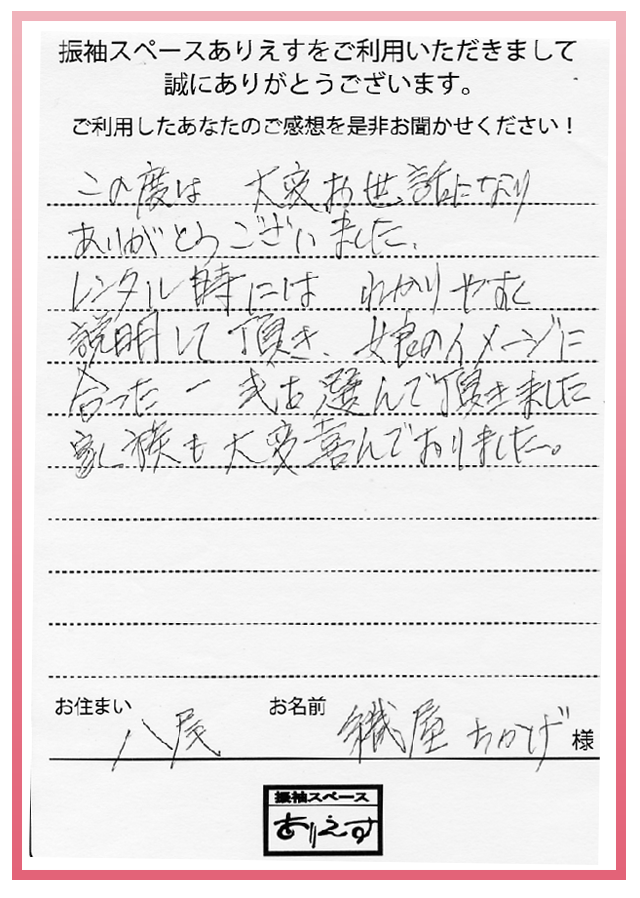 振袖スペースありえすをご利用いただきまして
誠にありがとうございます。
ご利用したあなたのご感想を是非お聞かせください！
この度は 大変お世話になり
ありがとうございました、
レンタル時には わかりやすく
説明して頂き、娘のイメージに
合った一式を選んで頂きました
家族も大変喜んでおりました。
お住まい 八尾 お名前 織屋 ちかげ 様
振袖スペース
ありえす